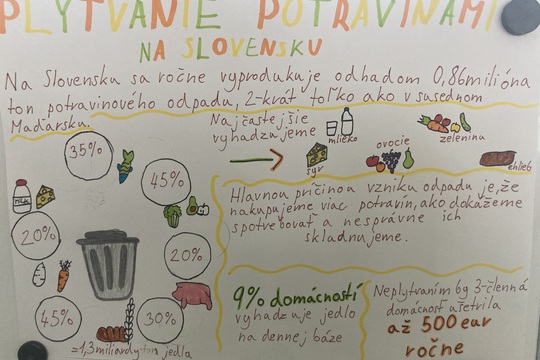 PLYTVANIE POTRAVINAMI
NA SLOVENSKU
Na Slovensku sa ročne vyprodukuje odhadom 0,86 milióna
ton potravinového odpadu, 2-krát toľko ako v susednom
Maďarsku.
Najčastejšie
vyhadzujeme
mlieko
zelenina
ovocie
syr
chlieb
35%
45%
MILK
20%
20%
45%
30%
=1,3 miliardy ton jedla
Hlavnou príčinou vzniku odpadu je, že
nakupujeme viac potravín, ako dokážeme
spotrebovať a nesprávne ich
skladnujeme.
9% domácností
vyhadzuje jedlo
na dennej báze
Neplytvaním by 3-členná
domácnosť ušetrila
až 500 eur
ročne